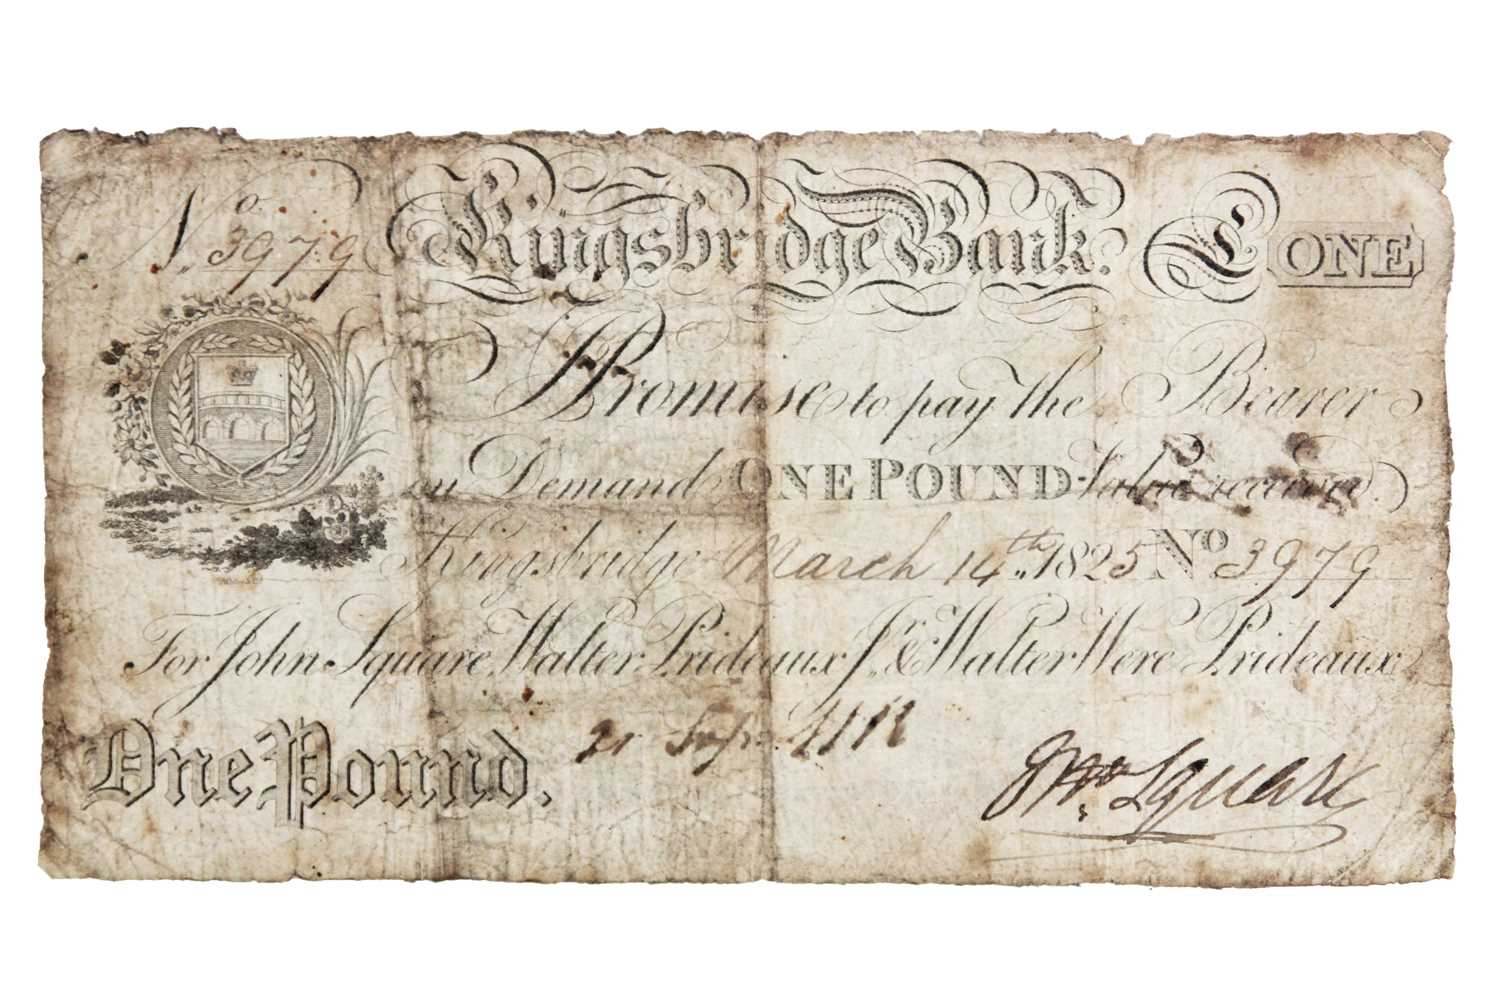 No. 3979 Kingsbridge Bank. £ ONE
I Promise to pay the Bearer
on Demand ONE POUND Value received.
Kingsbridge March 14th. 1825 No 3979
For John Square, Walter Prideaux Jr. & Walter Were Prideaux
One Pound. 21
Jno. Square